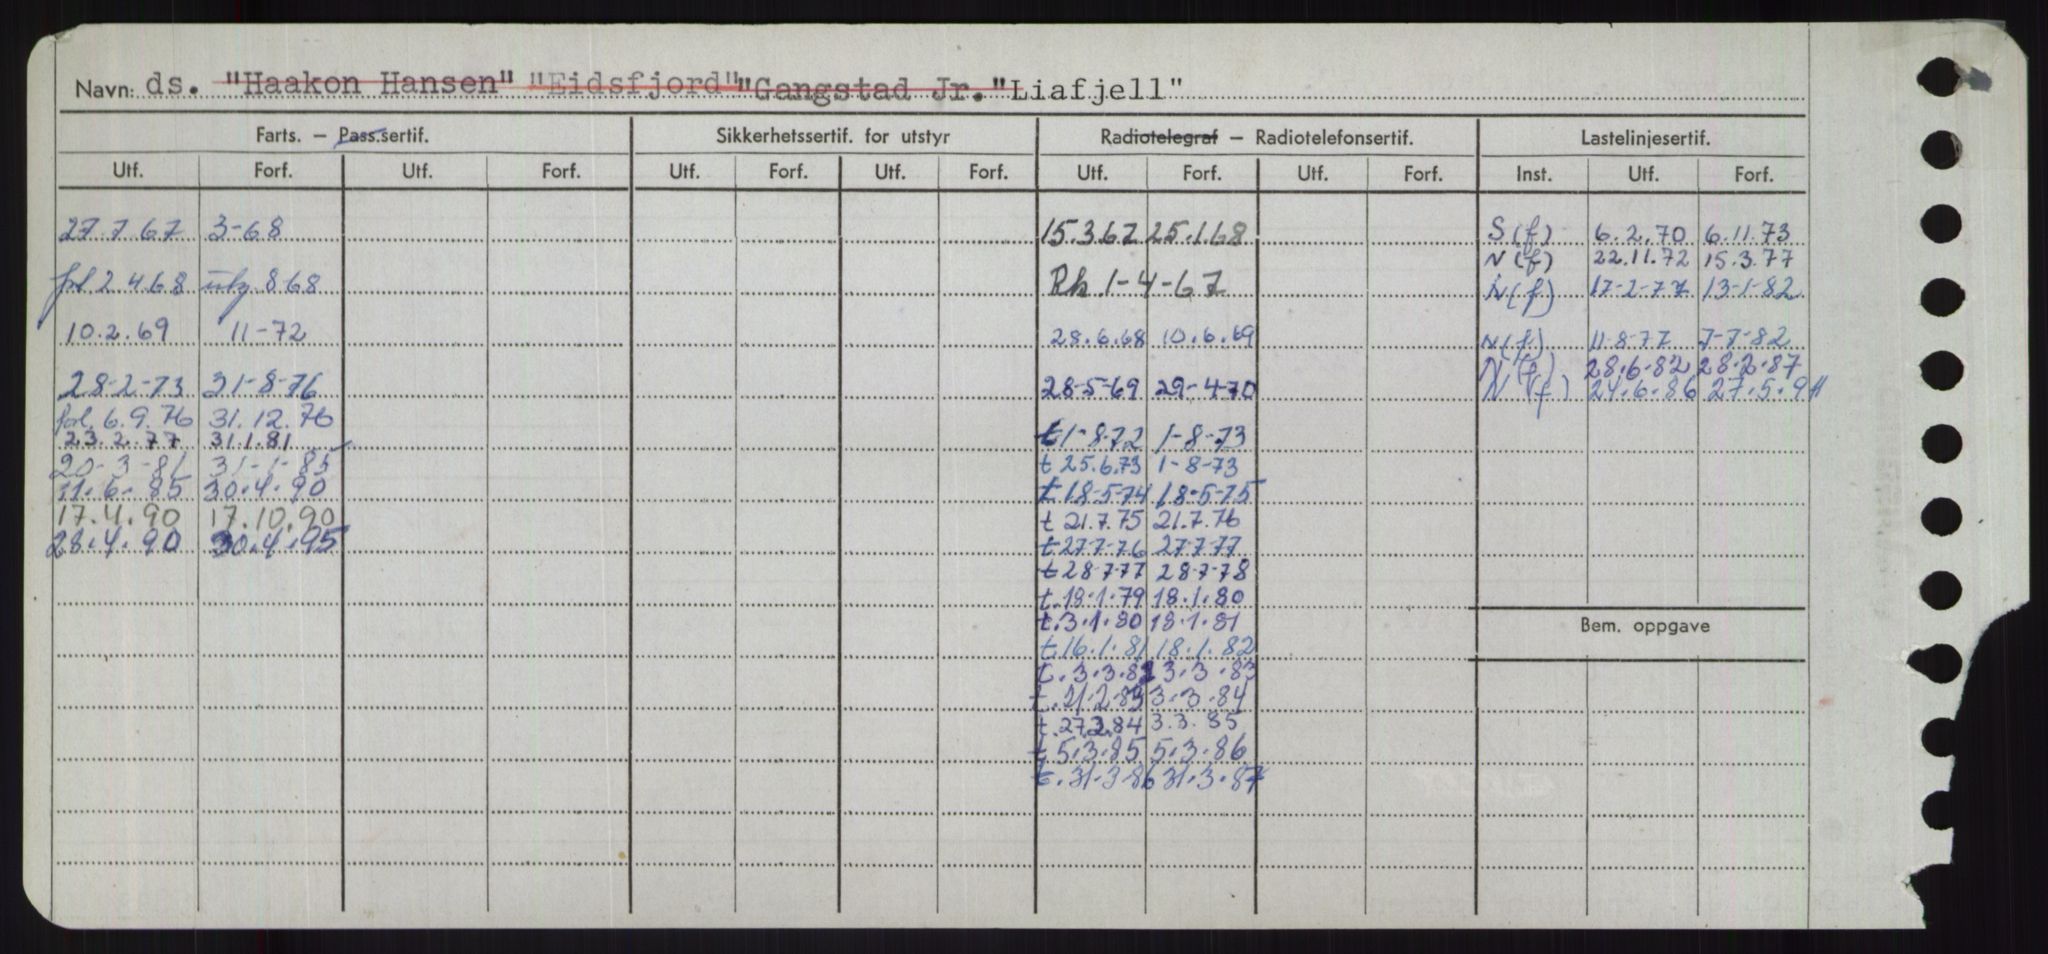 Navn: ds. "Haakon Hansen" "Eidsfjord" "Gangstad Jr." "Liafjell"
Farts. – Pass.sertif. Sikkerhetssertif. for utstyr Radiotelegraf – Radiotelefonsertif. Lastelinjesertif.
Utf. Forf. Utf. Forf. Utf. Forf. Utf. Forf. Utf. Forf. Utf. Forf. Inst. Utf. Forf.
27.7.67 3-68 15.3.67 25.1.68 S(f) 6.2.70 6.11.73
N(f) 22.11.72 15.3.77
2 4 68 8 68 Rk. 1-4-67 N(f) 17-2-77 13-1-82
10.2.69 11-72 28.6.68 10.6.69 N(f) 11-8-77 7-7-82
N(f) 28.6.82 28.2.87
28-2-73 31-8-76 28-5-69 29-4-70 N(f) 24.6.86 27.5.91
6.9.76 31.12.76
23.2.77 31.1.81 t 1-8-72 1-8-73
20-3-81 31-1-85 t 25.6.73 1-8-73
11.6.85 30.4.90 t 18-5-74 18-5-75
17.4.90 17.10.90 t 21.7.75 21.7.76
28.4.90 30.4.95 t 27-7-76 27-7-77
t 28-7-77 28-7-78
t. 18.1.79 18.1.80
t. 3.1.80 18.1.81
t. 16.1.81 18.1.82 Bem. oppgave
t. 3.3.82 3.3.83
t. 21.2.83 3.3.84
t. 27.2.84 3.3.85
t. 5.3.85 5.3.86
t. 31.3.86 31.3.87